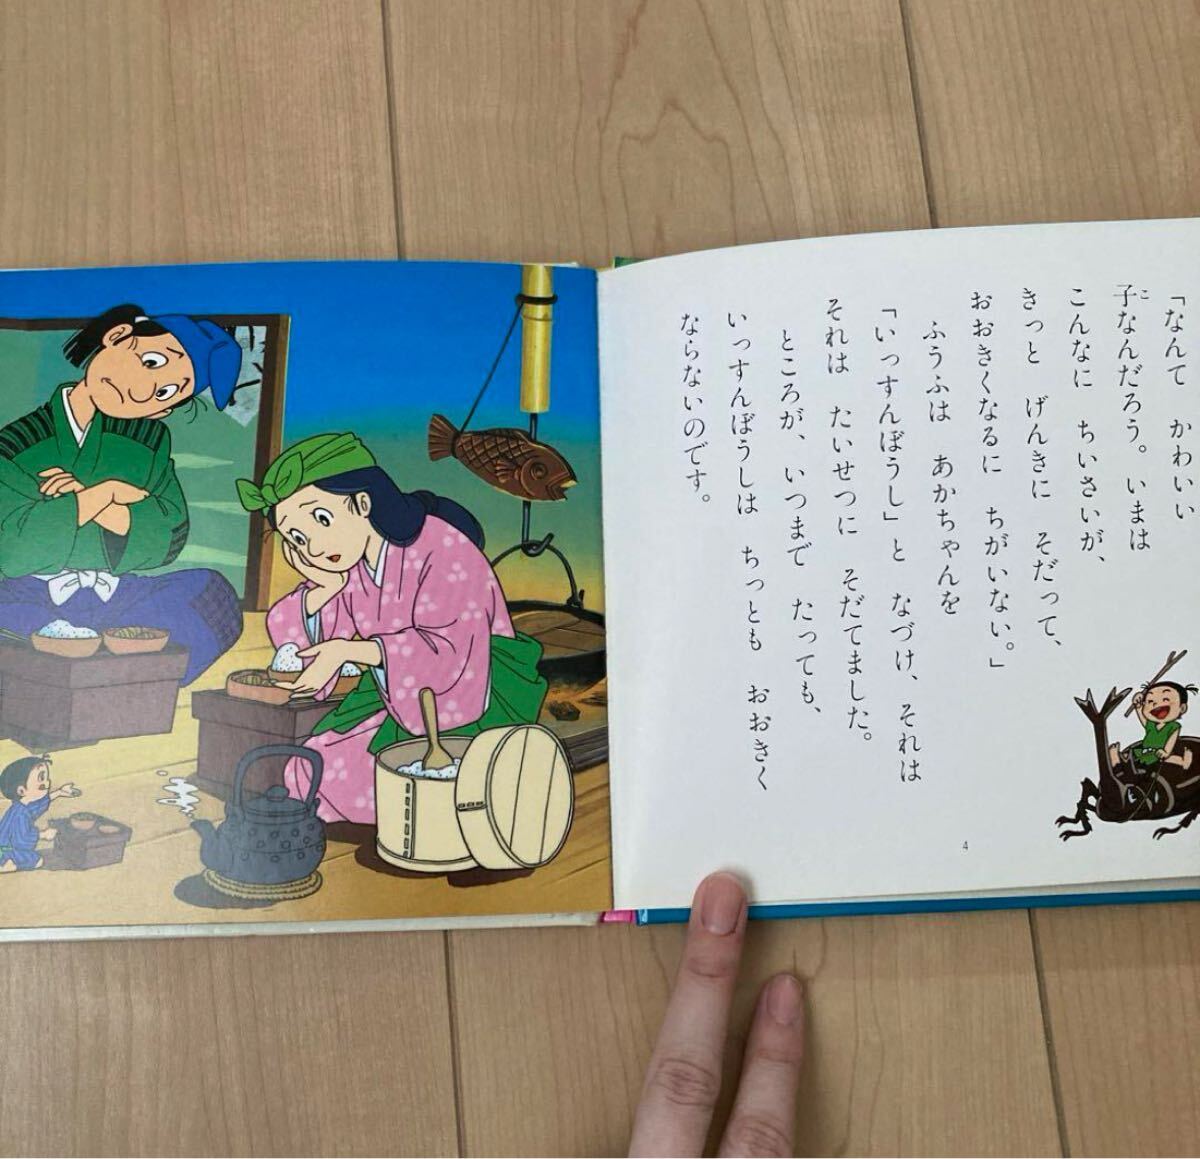 「なんて　かわいい
子なんだろう。いまは
こんなに　ちいさいが、
きっと　げんきに　そだって、
おおきくなるに　ちがいない。」
ふうふは　あかちゃんを
「いっすんぼうし」と　なづけ、それは
それは　たいせつに　そだてました。
ところが、いつまで　たっても、
いっすんぼうしは　ちっとも　おおきく
ならないのです。
4